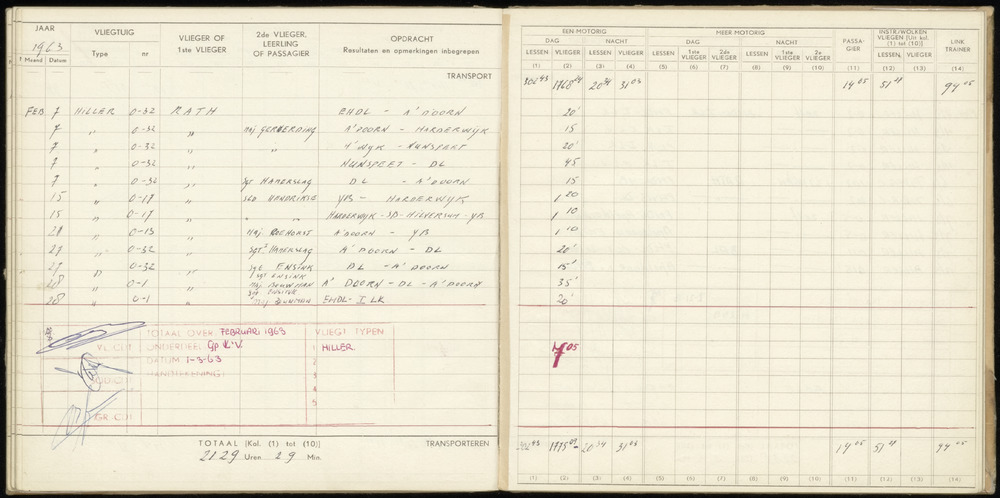 JAAR
1963
VLIEGTUIG
Type nr
VLIEGER OF 1ste VLIEGER
2de VLIEGER, LEERLING OF PASSAGIER
OPDRACHT
Resultaten en opmerkingen inbegrepen
Maand Datum
TRANSPORT
FEB 7 HILLER 0-32 RATH EHDL - A'DOORN
7 " 0-32 " A'DOORN - HARDERWIJK
7 " 0-32 " "
7 " 0-32 " NUNSPEET - DL
7 " 0-32 " sgt HAMERSLAG DL - A'DOORN
15 " 0-17 " YB - HARDERWIJK
15 " 0-17 " " HARDERWIJK - SD - HILVERSUM - YB
" " A'DOORN - YB
27 " 0-32 " sgt HAMERSLAG A'DOORN - DL
27 " 0-32 " sgt ENSINK DL - A'DOORN
28 " 0-1 " sgt ENSINK maj BOUWMAN A'DOORN - DL - A'DOORN
28 " 0-1 maj BOUWMAN EHDL - ILK
TOTAAL OVER FEBRUARI 1963 VLIEGT TYPEN
ONDERDEEL Gp 1 HILLER
DATUM 1-3-63 2
HANDTEKENING: 3
4
5
TOTAAL [Kol. (1) tot (10)] TRANSPORTEREN
2129 Uren 29 Min.
EEN MOTORIG
DAG NACHT
LESSEN VLIEGER LESSEN VLIEGER
MEER MOTORIG
DAG NACHT
LESSEN 1ste VLIEGER 2de VLIEGER LESSEN 1ste VLIEGER 2e VLIEGER
PASSAGIER
INSTR/WOLKEN VLIEGEN [Uit kol. (1) tot (10)]
LESSEN VLIEGER
LINK TRAINER
(1) (2) (3) (4) (5) (6) (7) (8) (9) (10) (11) (12) (13) (14)
302 43 1768 24 20 34 31 03 14 05 51 27 94 05
20'
15
20'
45
15
1 20
1 10
1 10
20'
15'
35'
20'
7 05
302 43 1775 29 20 34 31 03 14 05 51 27 94 05
(1) (2) (3) (4) (5) (6) (7) (8) (9) (10) (11) (12) (13) (14)